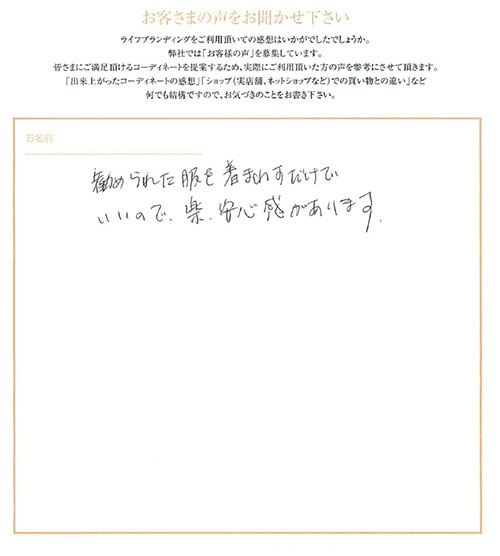 お客さまの声をお聞かせ下さい
ライフブランディングをご利用頂いての感想はいかがでしたでしょうか。
弊社では「お客様の声」を募集しています。
皆さまにご満足頂けるコーディネートを提案するため、実際にご利用頂いた方の声を参考にさせて頂きます。
「出来上がったコーディネートの感想」「ショップ（実店舗、ネットショップなど）での買い物との違い」など
何でも結構ですので、お気づきのことをお書き下さい。
お名前
勧められた服を着まわすだけで
いいので、楽、安心感があります。